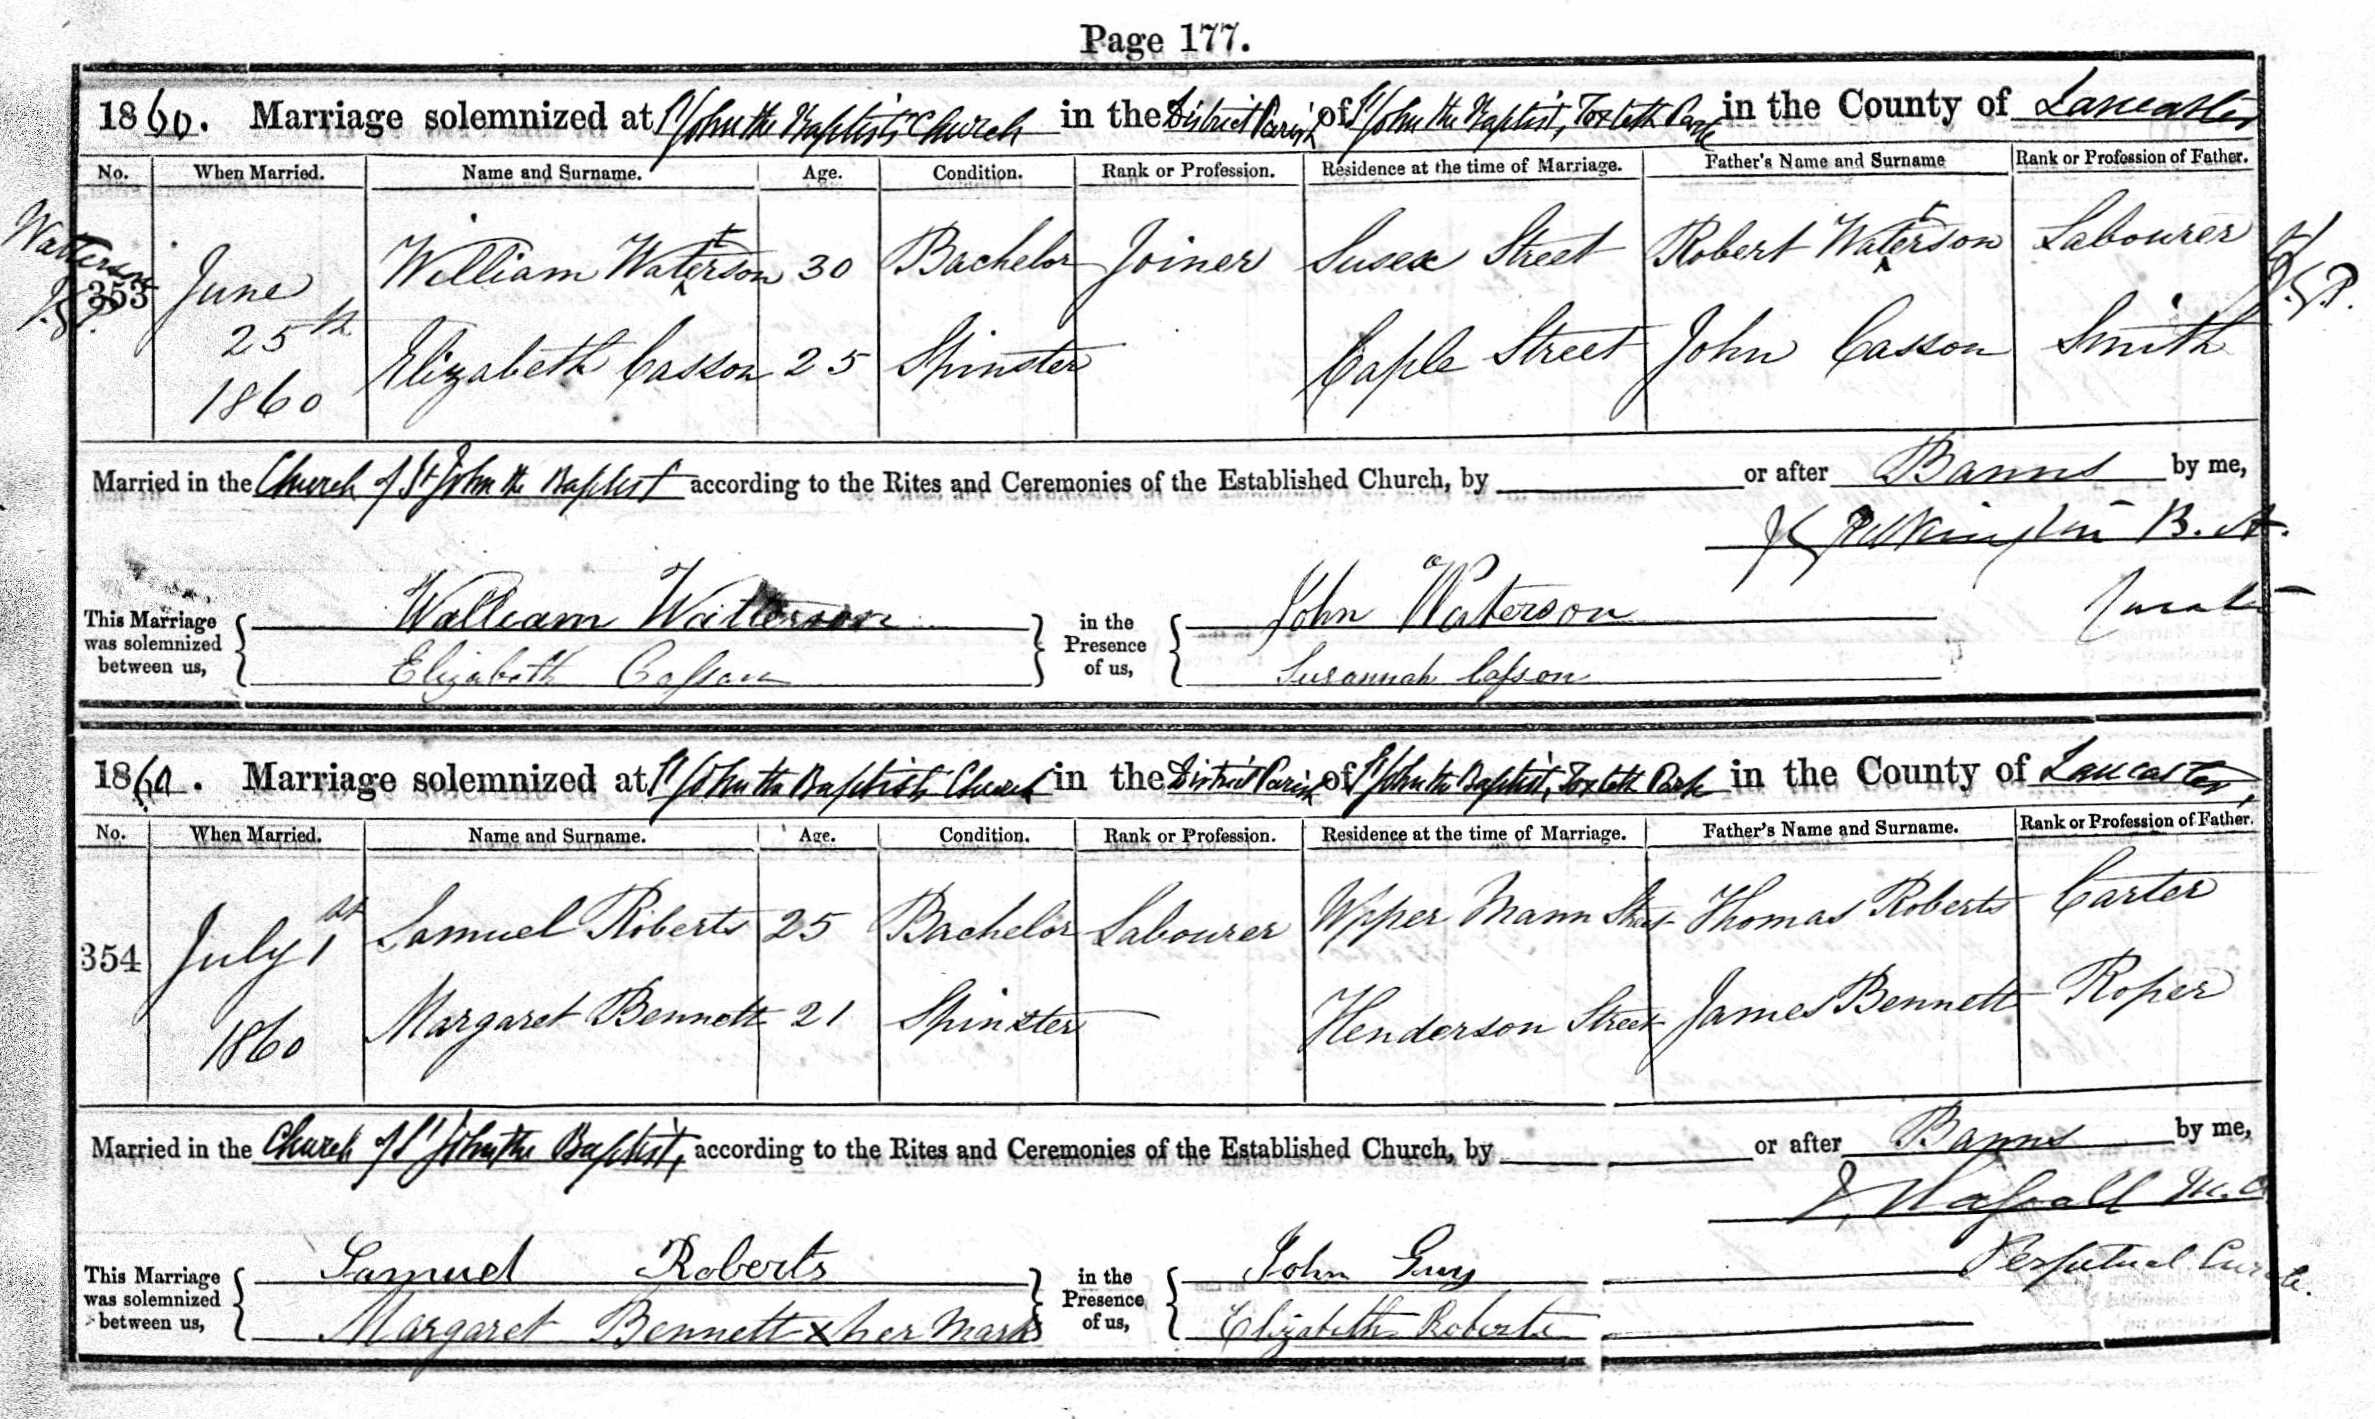 Page 177.
1860. Marriage solemnized at St John the Baptist's Church in the District Parish of St John the Baptist, Toxteth Park in the County of Lancaster
No. When Married. Name and Surname. Age. Condition. Rank or Profession. Residence at the time of Marriage. Father's Name and Surname Rank or Profession of Father.
Watterson
353 June 25th 1860 William Watterson 30 Bachelor Joiner Susex Street Robert Watterson Labourer
Elizabeth Casson 25 Spinster Caple Street John Casson Smith
J.P.
Married in the Church of St John the Baptist according to the Rites and Ceremonies of the Established Church, by or after Banns by me,
Pilkington B.A.
Curate
This Marriage was solemnized between us, William Watterson in the Presence of us, John Waterson
Elizabeth Casson Susannah Casson
1860. Marriage solemnized at St John the Baptist's Church in the District Parish of St John the Baptist, Toxteth Park in the County of Lancaster,
No. When Married. Name and Surname. Age. Condition. Rank or Profession. Residence at the time of Marriage. Father's Name and Surname. Rank or Profession of Father.
354 July 1st 1860 Samuel Roberts 25 Bachelor Labourer Upper Mann Street Thomas Roberts Carter
Margaret Bennett 21 Spinster Henderson Street James Bennett Roper
Married in the Church of St John the Baptist, according to the Rites and Ceremonies of the Established Church, by or after Banns by me,
Perpetual Curate.
This Marriage was solemnized between us, Samuel Roberts in the Presence of us, John Guy
Margaret Bennett x her mark Elizabeth Roberts